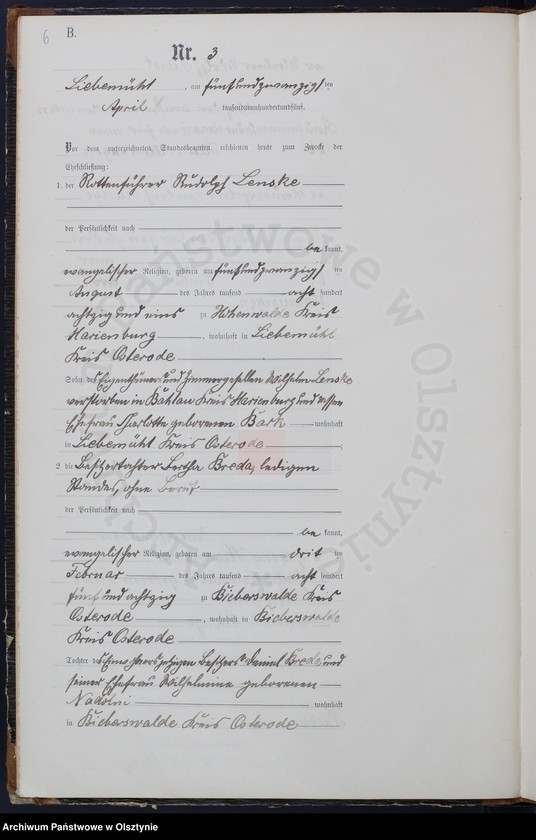 6 B.
Nr. 3
Liebemühl, am fünfundzwanzigsten
April tausendneunhundertundfünf.
Vor dem unterzeichneten Standesbeamten erschienen heute zum Zwecke der
Eheschließung:
1. der Rottenführer Rudolph Lenske
der Persönlichkeit nach
be kannt,
evangelischer Religion, geboren am fünfundzwanzigsten
August des Jahres tausend acht hundert
achtzig und eins zu Hohenwalde Kreis
Marienburg, wohnhaft in Liebemühl
Kreis Osterode
Sohn des Eigenthümers und Zimmergesellen Wilhelm Lenske
verstorben in Kreis Marienburg und dessen
Ehefrau Charlotte geborenen Bark wohnhaft
in Liebemühl Kreis Osterode;
2 die Besitzertochter Bertha Breda, ledigen
Standes, ohne Beruf
der Persönlichkeit nach
be kannt,
evangelischer Religion, geboren am drit ten
Februar des Jahres tausend acht hundert
fünf und achtzig zu Bieberswalde Kreis
Osterode, wohnhaft in Bieberswalde
Kreis Osterode
Tochter des Besitzers Daniel Breda und
seiner Ehefrau Wilhelmine geborenen
Nadolni wohnhaft
in Bieberswalde Kreis Osterode
Archiwum Państwowe w Olsztynie
Archiwum Państwowe w Olsztynie